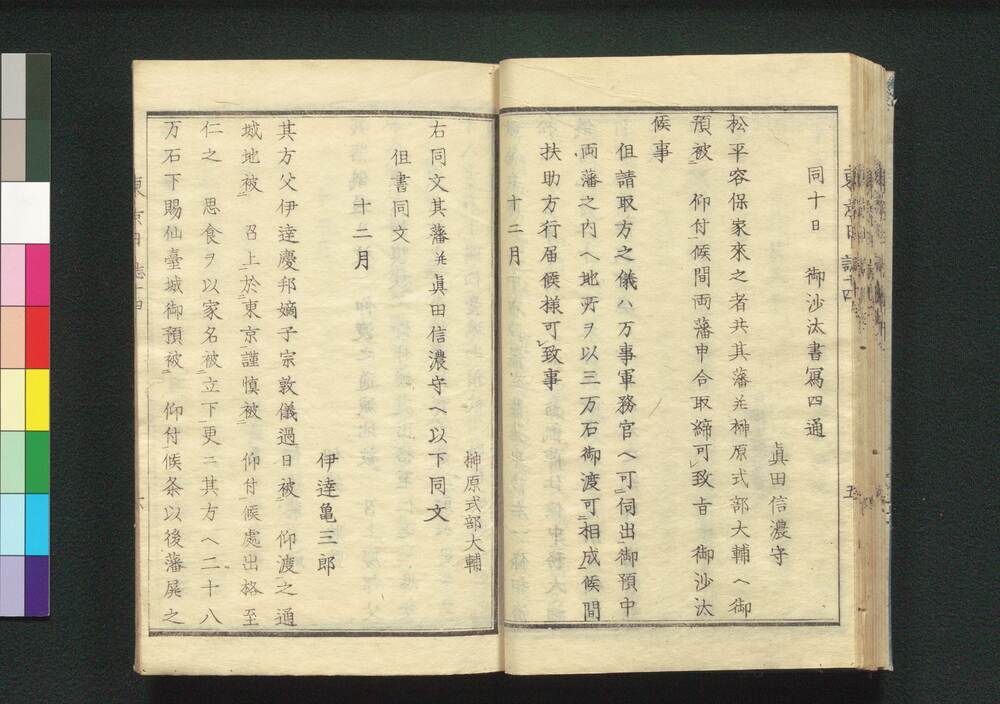 同十日　御沙汰書寫四通
眞田信濃守
松平容保家來之者共其藩並榊原式部大輔ヘ御
預被　仰付候間両藩申合取締可致旨　御沙汰
候事
但請取方之儀ハ万事軍務官ヘ可伺出御預中
両藩之内ヘ地所ヲ以三万石御渡可相成候間
扶助方行届候様可致事
十二月
榊原式部大輔
右同文其藩並眞田信濃守ヘ以下同文
但書同文
十二月
伊達亀三郎
其方父伊達慶邦嫡子宗敦儀過日被　仰渡之通
城地被　召上於東京謹慎被　仰付候處出格至
仁之　思食ヲ以家名被立下更ニ其方ヘ二十八
万石下賜仙臺城御預被　仰付候条以後藩屏之